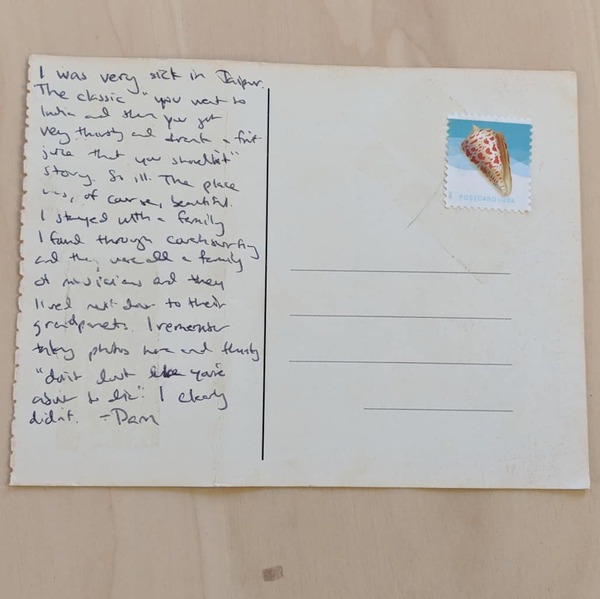 I was very sick in Jaipur.
The classic "you went to
India and then you got
very thirsty and drank a fruit
juice that you shouldn't"
story. So ill. The place
was, of course, beautiful.
I stayed with a family
I found through couchsurfing
and they were all a family
of musicians and they
lived next door to their
grandparents. I remember
taking photos here and thinking
"don't look like you're
about to die". I clearly
didn't. -Pam
POSTCARD USA